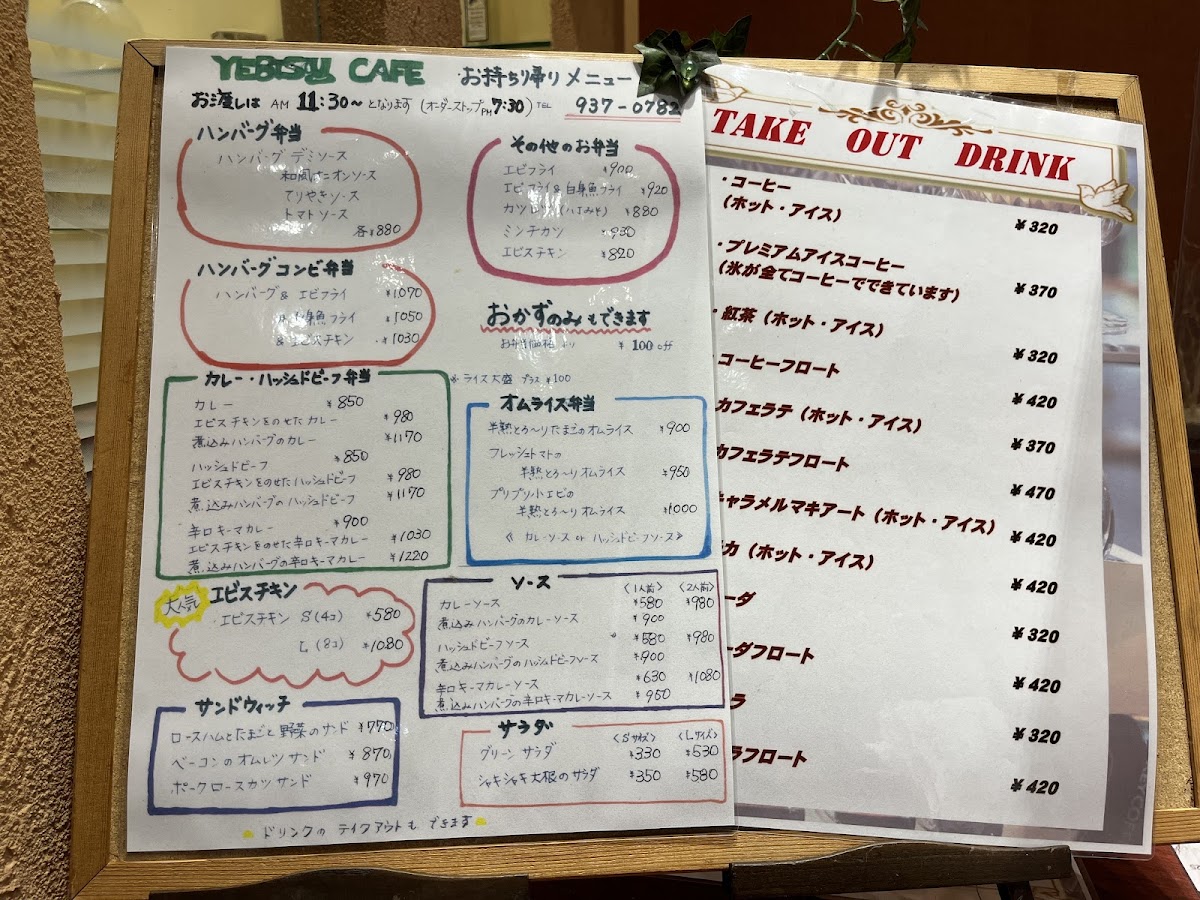 YEBISU CAFE お持ち帰りメニュー
お渡しは AM 11:30〜 となります (オーダーストップPM7:30) TEL 937-0782
ハンバーグ弁当
ハンバーグ デミソース
和風オニオンソース
てりやきソース
トマトソース
各¥880
ハンバーグコンビ弁当
ハンバーグ& エビフライ ¥1070
フライ ¥1050
& エビスチキン ¥1030
カレー・ハッシュドビーフ弁当
カレー ¥850
エビスチキンをのせたカレー ¥980
煮込みハンバーグのカレー ¥1170
ハッシュドビーフ ¥850
エビスチキンをのせたハッシュドビーフ ¥980
煮込みハンバーグのハッシュドビーフ ¥1170
辛口キーマカレー ¥900
エビスチキンをのせた辛口キーマカレー ¥1030
煮込みハンバーグの辛口キーマカレー ¥1220
大人気 エビスチキン
・エビスチキン S(4コ) ¥580
L (8コ) ¥1080
サンドウィッチ
ロースハムとたまごと野菜のサンド ¥770
ベーコンのオムレツサンド ¥870
ポークロースカツサンド ¥970
ドリンクの テイクアウトも できます
その他のお弁当
エビフライ ¥900
エビフライ&白身魚フライ ¥920
(八丁みそ) ¥880
ミンチカツ ¥930
エビスチキン ¥820
おかずのみもできます
お弁当価格より ¥100off
ライス大盛 プラス ¥100
オムライス弁当
半熟とろ〜りたまごのオムライス ¥900
フレッシュトマトの
半熟とろ〜りオムライス ¥950
プリプリ小エビの
半熟とろ〜りオムライス ¥1000
《 カレーソース or ハッシュドビーフソース 》
ソース 〈1人前〉 〈2人前〉
カレーソース ¥580 ¥980
煮込みハンバーグのカレーソース ¥900
ハッシュドビーフソース ¥580 ¥980
煮込みハンバーグのハッシュドビーフソース ¥900
辛口キーマカレーソース ¥630 ¥1080
煮込みハンバーグの辛口キーマカレーソース ¥950
サラダ 〈Sサイズ〉 〈Lサイズ〉
グリーン サラダ ¥330 ¥530
シャキシャキ大根のサラダ ¥350 ¥580
TAKE OUT DRINK
・コーヒー
（ホット・アイス） ¥320
・プレミアムアイスコーヒー
（氷が全てコーヒーでできています） ¥370
・紅茶（ホット・アイス） ¥320
コーヒーフロート ¥420
カフェラテ（ホット・アイス） ¥370
カフェラテフロート ¥470
キャラメルマキアート（ホット・アイス） ¥420
カ（ホット・アイス） ¥420
ーダ ¥320
ーダフロート ¥420
ラ ¥320
ラフロート ¥420